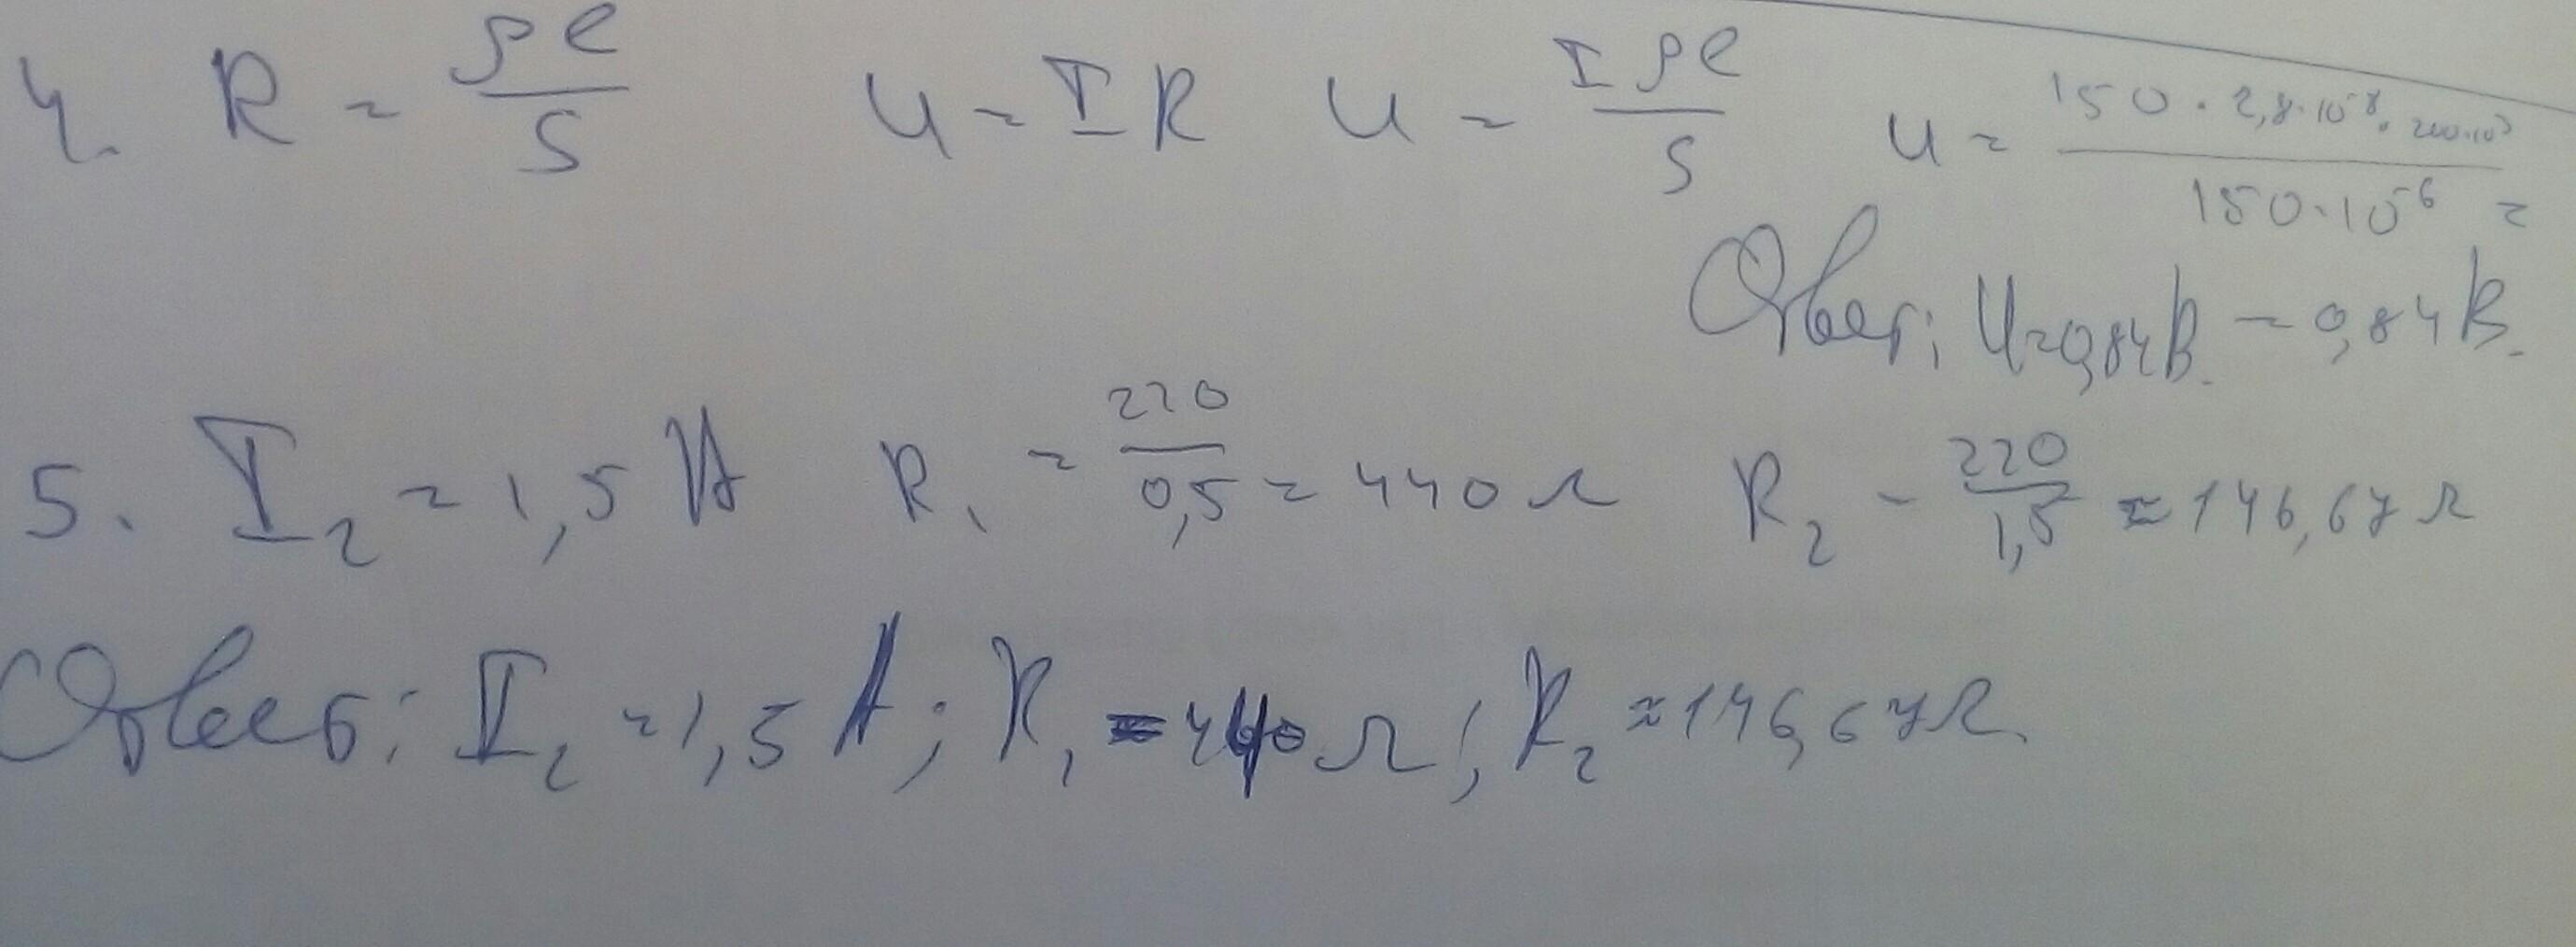 4. R = ρl/S U = IR U = Iρl/S U = 150 · 2,8·10⁻⁸ · 200·10³ / 150·10⁻⁶ =
= 0,84 В.
Ответ: U=0,84 В.
5. I₂ = 1,5 А R₁ = 220/0,5 = 440 Ω R₂ = 220/1,5 ≈ 146,67 Ω
Ответ: I₂ = 1,5 А; R₁ = 440 Ω; R₂ ≈ 146,67 Ω.